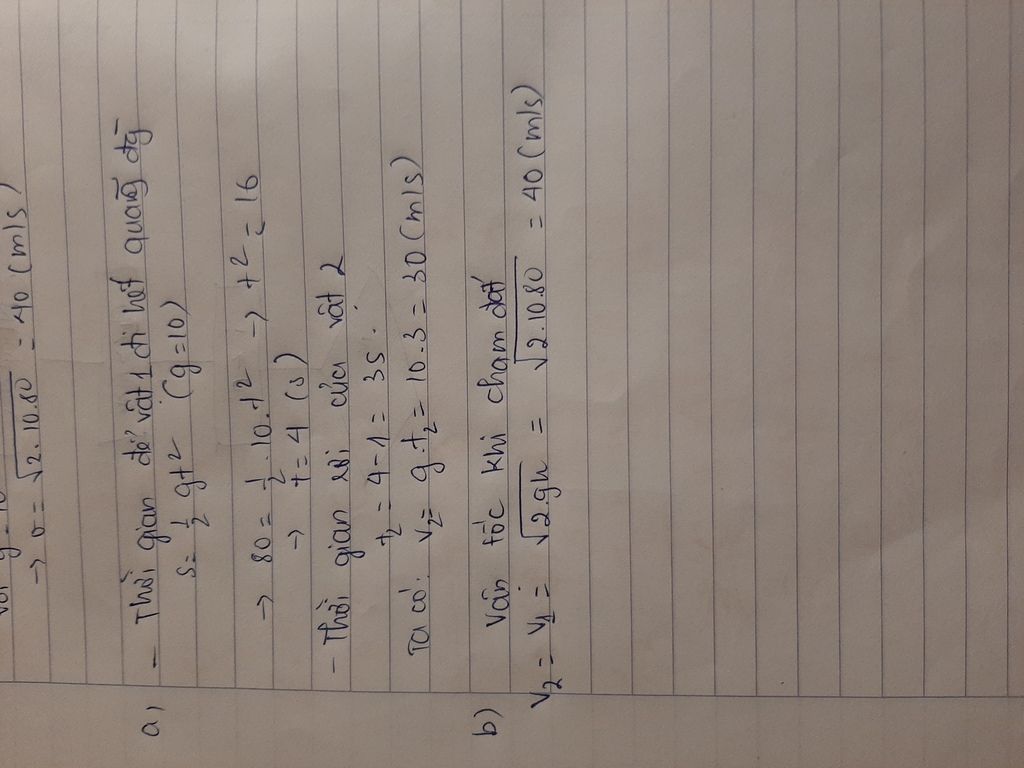 → v = √2.10.80 = 40 (m/s)
a) - Thời gian để vật 1 đi hết quãng đg
s = 1/2 gt² (g=10)
→ 80 = 1/2 .10.t² → t² = 16
→ t = 4 (s)
- Thời gian rơi của vật 2
t₂ = 4-1 = 3s.
Ta có: v₂ = g.t₂ = 10.3 = 30 (m/s)
b) Vận tốc khi chạm đất
v₂ = v₁ = √2gh = √2.10.80 = 40 (m/s)